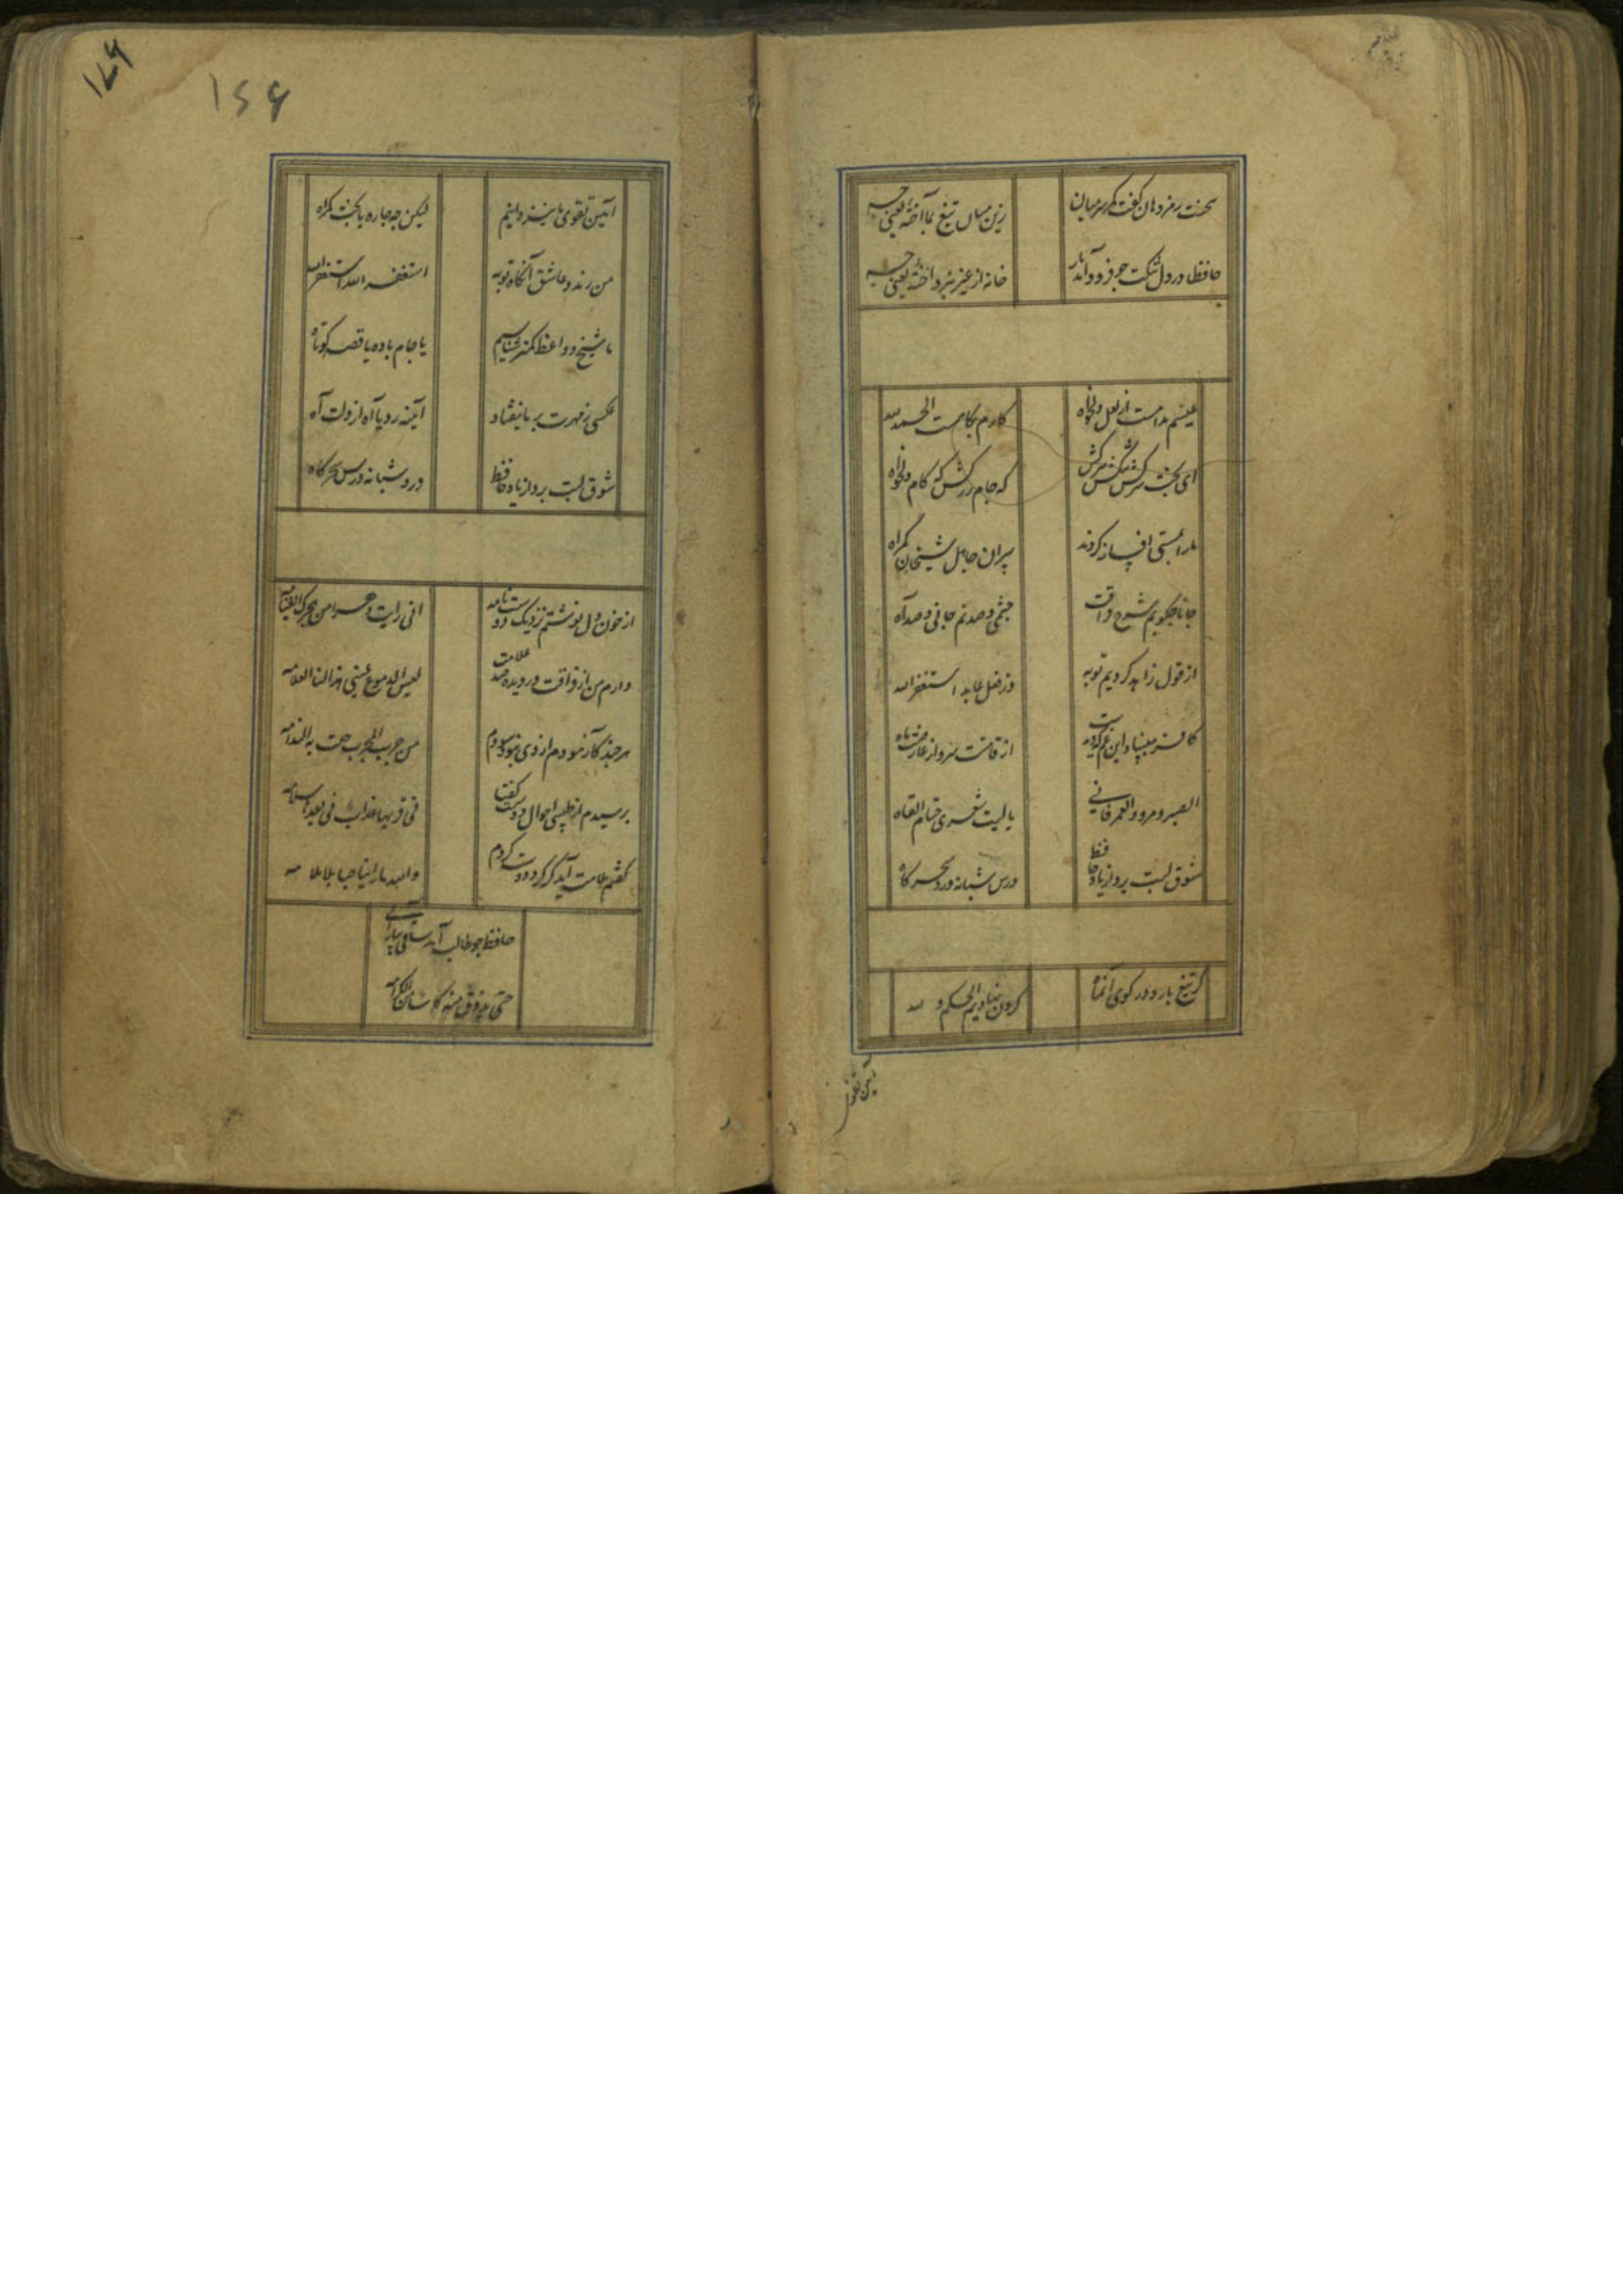 سخنت رمز دهان گفت کمر سر میان
زین میان تیغ بما آخته یعنی چه
حافظا در دل تنکت چو فرود آمد یار
خانه از غیر نپرداخته یعنی چه
عیشم مدامست از لعل دلخواه
کارم بکامست الحمد لله
ای بخت سرکش تنکش ببر کش
که جام زر کش که کام دلخواه
ما را بمستی افسانه کردند
پیران جاهل شیخان کمراه
جانا چکویم شرح فراقت
چشمی و صد نم جانی و صد آه
از قول زاهد کردیم توبه
وز فعل عابد استغفر الله
کافر مبیناد این غم که دیدست
از قامتت سرو از عارضت ماه
الصبر مر و العمر فانی
یا لیت شعری حتام القاه
شوق لبت برد از یاد حافظ
درس شبانه ورد سحرکاه
کر تیغ بارد در کوی آنماه
کردن نهادیم الحکم لله
آیین تقوی
۱۷۶
۱۵۶
آیین تقوی ما نیز دانیم
لیکن چه چاره با بخت کمراه
من رند و عاشق آنکاه توبه
استغفر الله استغفر الله
ما شیخ و واعظ کمتر شناسیم
یا جام باده یا قصه کوتاه
عکسی ز مهرت بر ما نیفتاد
آیینه رویا آه از دلت آه
شوق لبت برد از یاد حافظ
ورد شبانه درس سحرکاه
از خون دل نوشتم نزدیک دوست نامه
انی رایت دهرا من هجرک القیامه
دارم من از فراقت در دیده صد علامت
لیس الدموع عینی هذا لنا العلامه
هر چند کازمودم از وی نبود سودم
من جرب المجرب حلت به الندامه
پرسیدم از طبیبی احوال دوست گفتا
فی قربها عذاب فی بعدها سلامه
گفتم ملامت آید کر کرد دوست کردم
والله ما راینا حبا بلا ملامه
حافظ چو طالب آمد
حتی یذوق منه کاسا من الکرامه